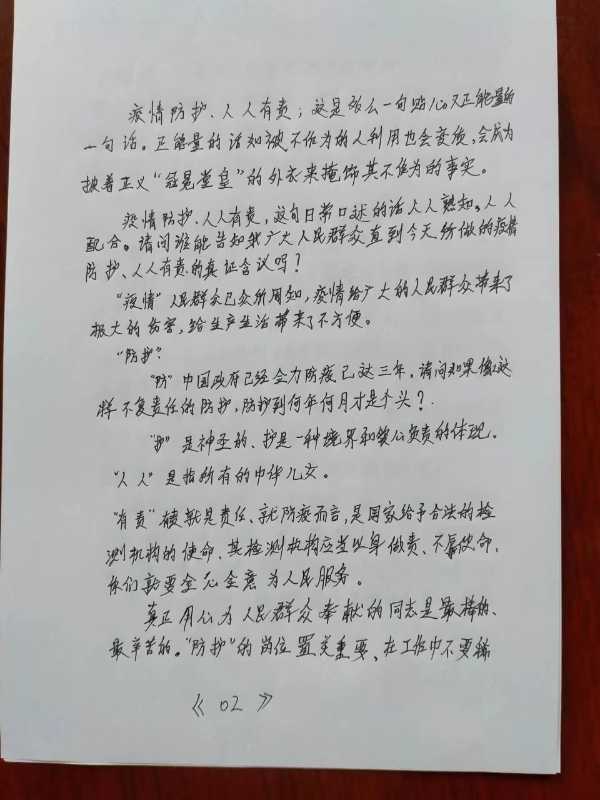 疫情防护、人人有责；这是多么一句贴心又正能量的
一句话。正能量的话如被不作为的人利用也会变质，会成为
披着正义“冠冕堂皇”的外衣来掩饰其不作为的事实。
疫情防护、人人有责，这句日常口述的话人人熟知。人人
配合。请问谁能告知我广大人民群众直到今天所做的疫情
防护、人人有责的真正含议吗？
“疫情”人民群众已众所周知，疫情给广大的人民群众带来了
极大的伤害，给生产生活带来了不方便。
“防护”：
“防”中国政府已经全力防疫已达三年。请问如果像这
样不负责任的防护，防护到何年何月才是个头？
“护”是神圣的、护是一种境界和爱心负责的体现。
“人人”是指所有的中华儿女。
“有责”就是责任、就防疫而言，是国家给予合法的检
测机构的使命、其检测机构应当以身做责、不辱使命、
你们就要全心全意为人民服务。
真正用心为人民群众奉献的同志是最棒的、
最辛苦的。“防护”的岗位置关重要、在工作中不要稀
《02》